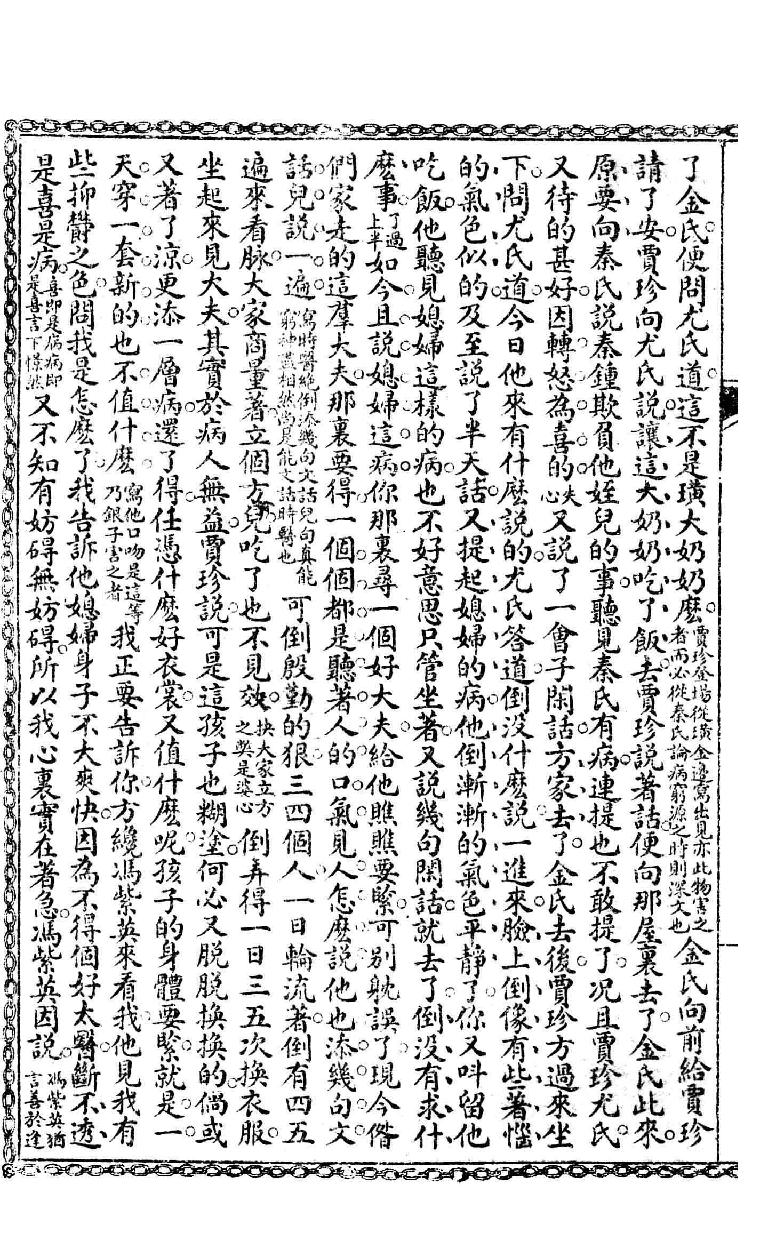 了金氏便問尤氏道這不是璜大奶奶麽賈珍登塲從璜金邉寫出見亦此物害之者而必從秦氏論病窮源之時則深文也金氏向前給賈珍
請了安賈珍向尤氏說讓這大奶奶吃了飯去賈珍說著話便向那屋裏去了金氏此來
原要向秦氏說秦鍾欺負他姪兒的事聽見秦氏有病連提也不敢提了况且賈珍尤氏
又待的甚好因轉怒為喜的又說了一會子閑話方家去了金氏去後賈珍方過來坐
下問尤氏道今日他來有什麽說的尤氏答道倒没什麽說一進來臉上倒像有些著惱
的氣色似的及至說了半天話又提起媳婦的病他倒漸漸的氣色平靜了你又呌留他
吃飯他聽見媳婦這樣的病也不好意思只管坐著又說幾句閑話就去了倒没有求什
麽事了過上半如今且說媳婦這病你那裏尋一個好大夫給他瞧瞧要緊可别躭誤了現今偺
們家走的這羣大夫那裏要得一個個都是聽著人的口氣見人怎麽說他也添幾句文
話兒說一遍寫時醫絶倒添幾句文話兒句真能窮神盡相然尚是能文話時醫也可倒殷勤的狠三四個人一日輪流著倒有四五
遍來看脉大家商量著立個方兒吃了也不見效抉大家立方之獘是婆心倒弄得一日三五次換衣服
坐起來見大夫其實於病人無益賈珍說可是這孩子也糊塗何必又脫脫換換的倘或
又著了涼更添一層病還了得任憑什麽好衣裳又值什麽呢孩子的身體要緊就是一
天穿一套新的也不值什麽寫他口吻是這等乃銀子害之者我正要告訴你方纔馮紫英來看我他見我有
些抑鬱之色問我是怎麽了我告訴他媳婦身子不大爽快因為不得個好太醫斷不透
是喜是病喜即是病病即是喜言下憬然又不知有妨碍無妨碍所以我心裏實在著急馮紫英因說馮紫英猶言善於逢